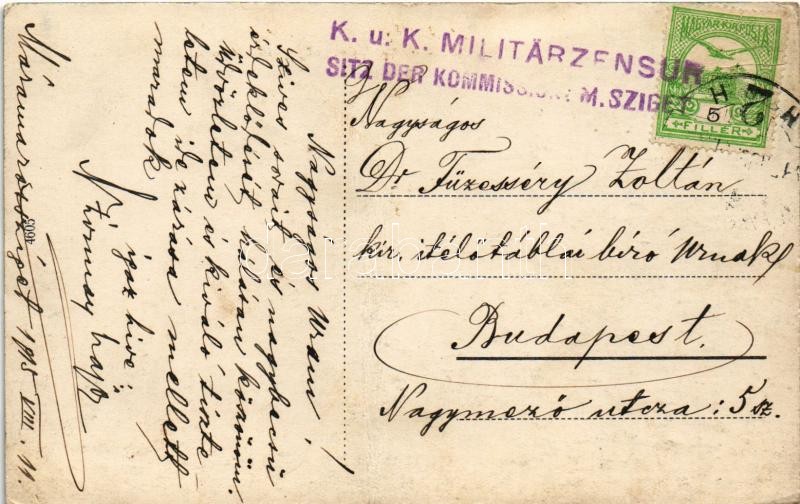 K. u. K. MILITÄRZENSUR
SITZ DER KOMMISSION: M. SZIGET
MAGYAR KIR. POSTA
FILLÉR
Nagyságos
Dr Füzesséry Zoltán
kir. itélőtáblai biró Urnak
Budapest.
Nagymező utcza: 5 sz.
Nagyságos Uram!
Szives sorait és nagybecsü
érdeklődését hálásan köszönöm.
Üdvözletem és kiváló tiszte-
letem ide zárása mellett
maradok
igaz hive:
Máramarossziget 1915 VIII. 11.
4605